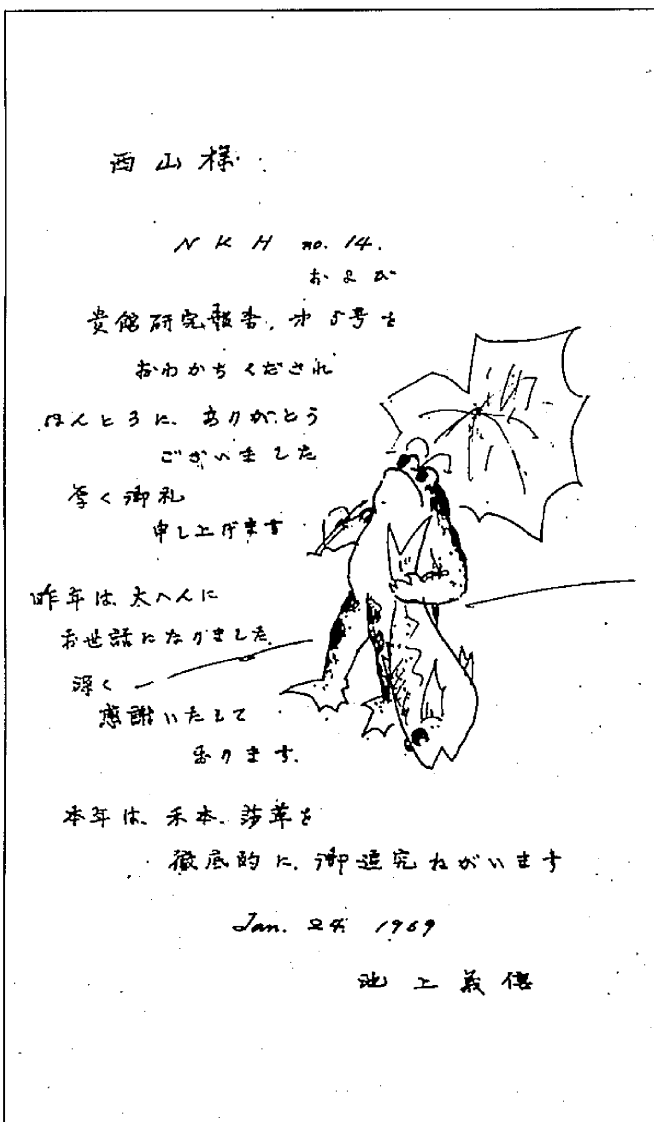 西山様
NKH no. 14.
および
貴館研究報告、才5号を
おわかちくだされ
ほんとうに、ありがとう
ございました
厚く御礼
申し上げます
昨年は、大へんに
お世話になりました
深く
感謝いたして
居ります。
本年は、禾本、莎草を
徹底的に、御追究ねがいます
Jan. 24. 1969
池上義信